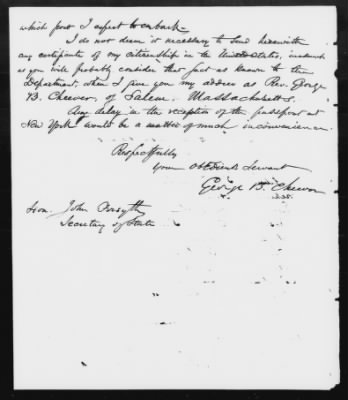 which port I expect to embark
I do not deem it necessary to send herewith
any certificate of my citizenship in the United States, inasmuch
as you will probably consider that fact as known to the
Department, when I give you my address as Rev. George
B. Cheever, of Salem, Massachusetts.
Any delay in the reception of the passport at
New York would be a matter of much inconvenience.
Respectfully
Your obedient Servant
George B. Cheever
Hon. John Forsyth
Secretary of State